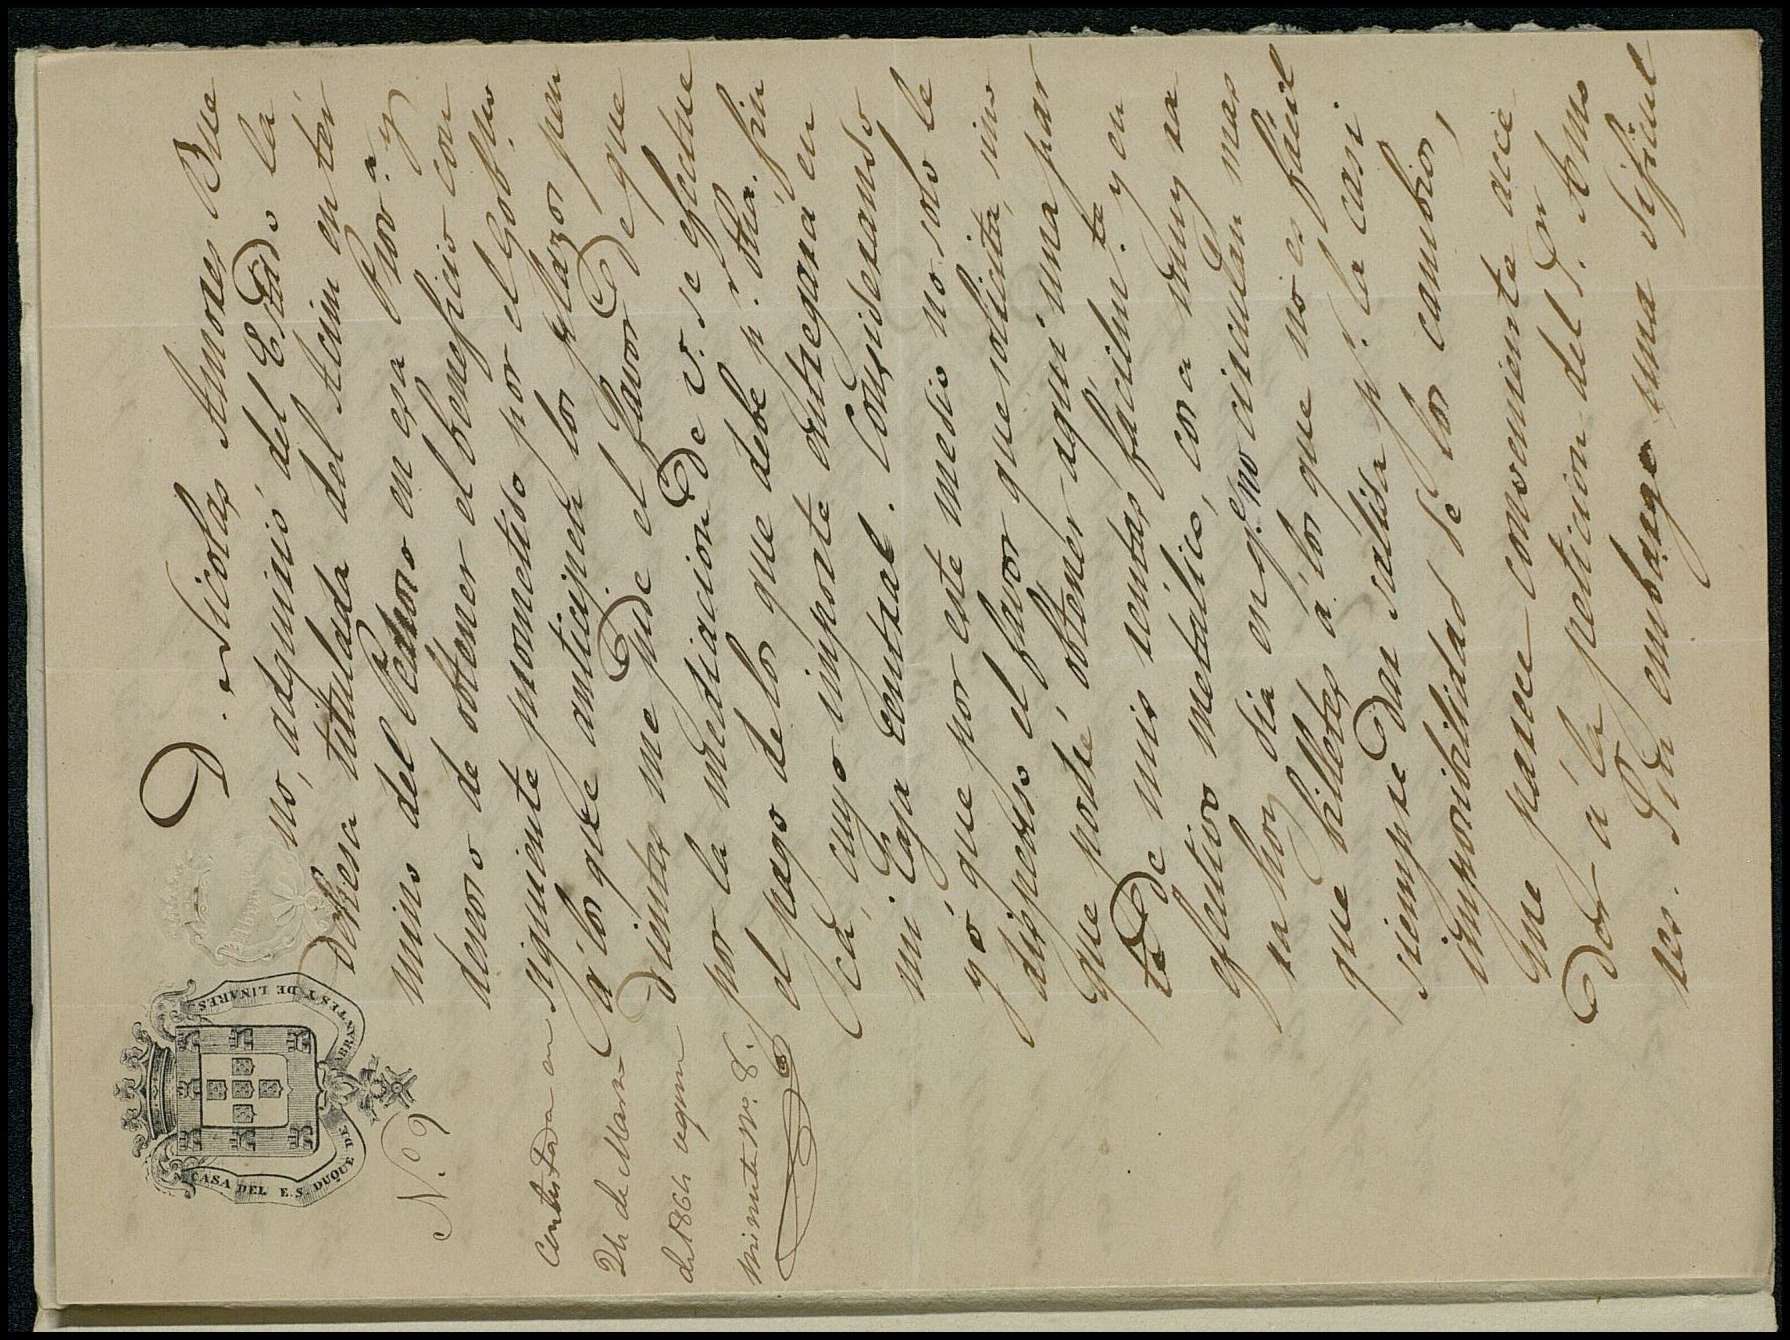 CASA DEL E. S. DUQUE DE ABRANTES Y DE LINARES
N.º 9
Contestada en
24 de Marzo
de 1864 segun
minuta Nº. 8.
D. Nicolas Amores Bue
no, adquirió del Estado la
dehesa titulada del Acim en tér
mino del Pedroso en esa Prov.ª y
deseoso de obtener el beneficio con
siguiente prometido por el Gob.no
á los que anticipen los plazos pen
dientes me pide el favor de que
por la mediacion de V. se efectue
el pago de los que debe p.r dha. fin
ca, cuyo importe entregará en
mi Caja central. Considerando
yó que por este medio no solo le
dispenso el favor que solicita, sino
que podré obtener aquí una par
te de mis rentas facilm.te y en
efectivo metálico, cosa muy ra
ra hoy dia en q.e no circulan mas
que billetes á los que no es fácil
siempre dar salida p.r la casi
imposibilidad de los cambios,
me parece conveniente acce
der á la peticion del S.or Amo
res. Sin embargo una dificul